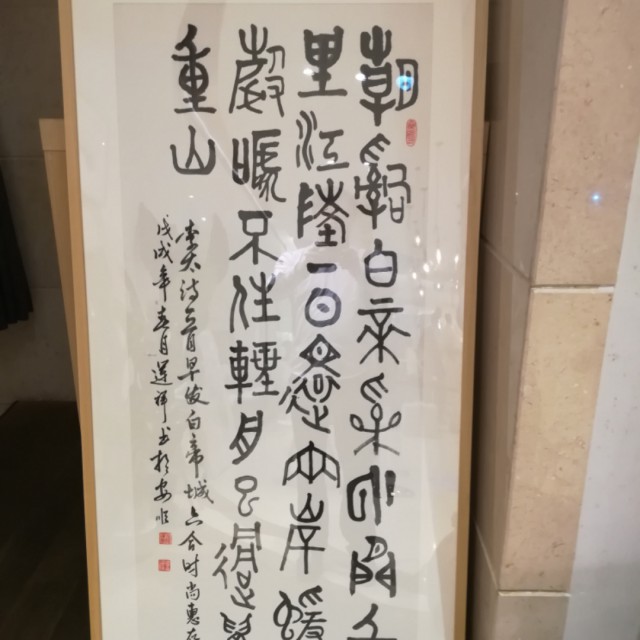 朝辭白帝采云間千
里江陵一日還兩岸猨
聲啼不住輕舟已過萬
重山
李太诗一首早發白帝城六合时尚惠存
戊戌年春月祥书於安